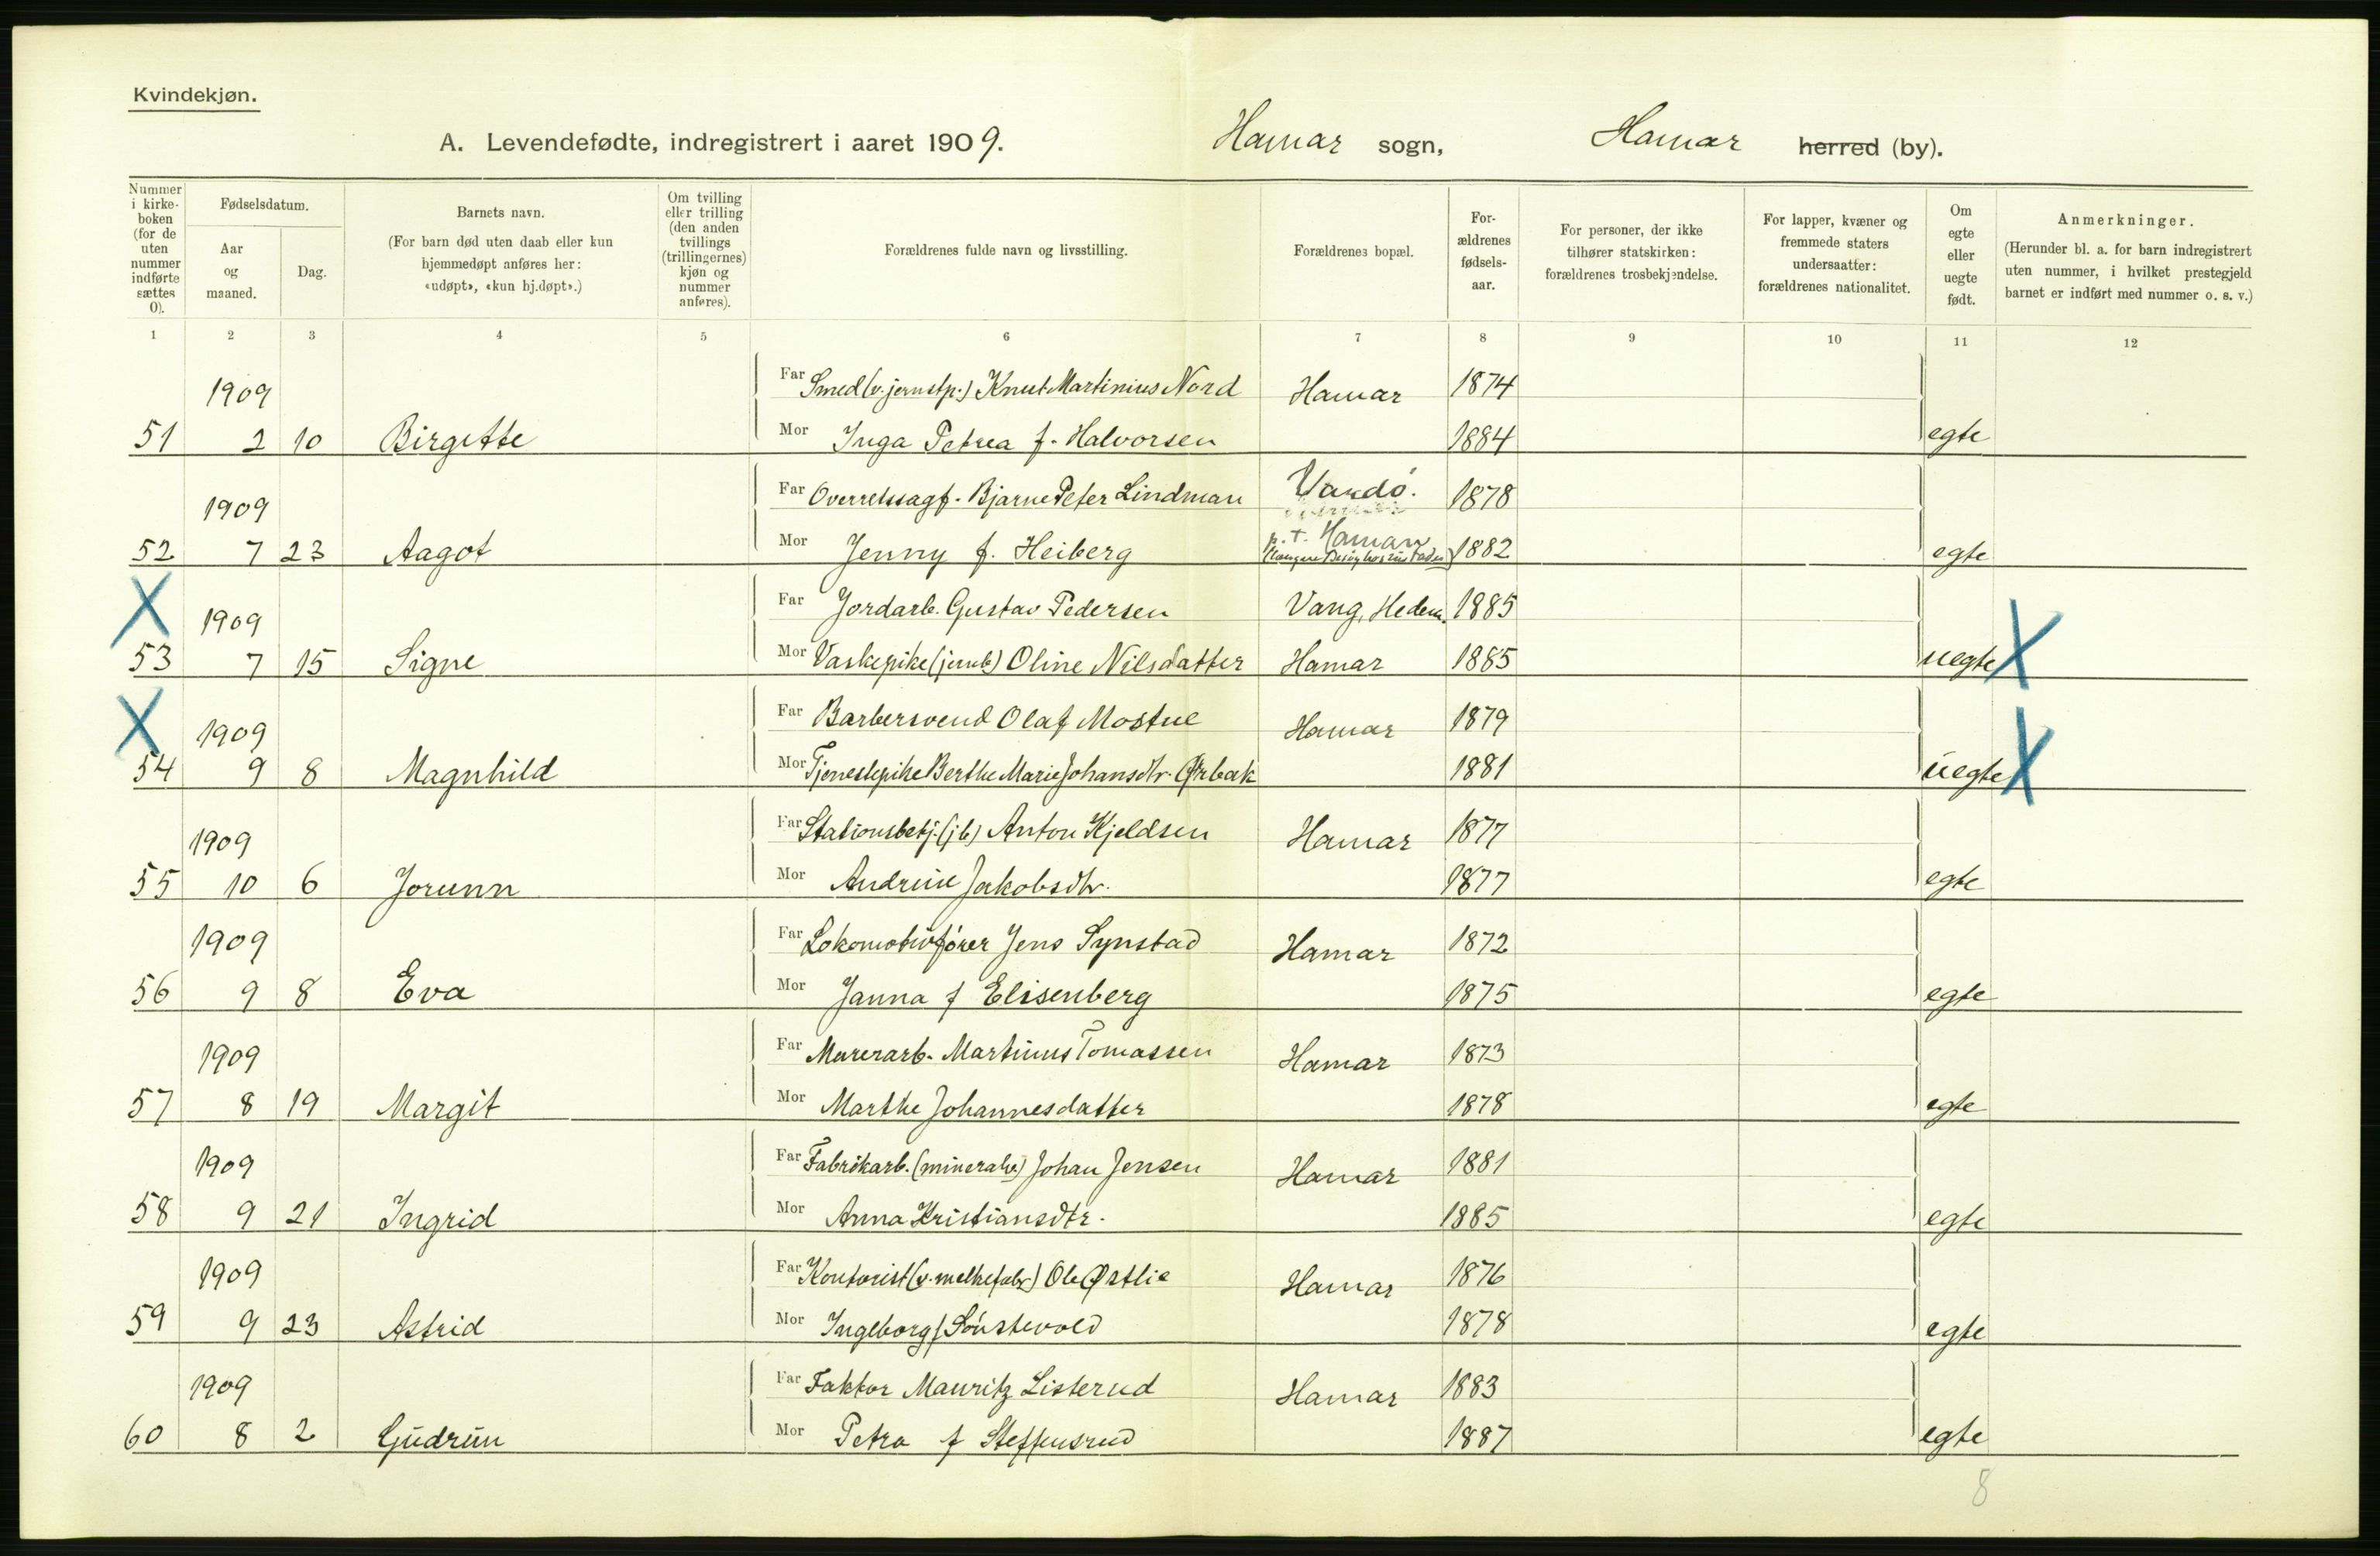 Kvindekjøn.
A. Levendefødte, indregistrert i aaret 1909. Hamar sogn, Hamar herred (by).
Nummer i kirke-boken (for de uten nummer indførte sættes 0).
Fødselsdatum.
Aar og maaned.
Dag.
Barnets navn.
(For barn død uten daab eller kun hjemmedøpt anføres her: «udøpt», «kun hj.døpt».)
Om tvilling eller trilling (den anden tvillings (trillingernes) kjøn og nummer anføres).
Forældrenes fulde navn og livsstilling.
Forældrenes bopæl.
For-ældrenes fødsels-aar.
For personer, der ikke tilhører statskirken: forældrenes trosbekjendelse.
For lapper, kvæner og fremmede staters undersaatter: forældrenes nationalitet.
Om egte eller uegte født.
Anmerkninger.
(Herunder bl. a. for barn indregistrert uten nummer, i hvilket prestegjeld barnet er indført med nummer o. s. v.)
1 2 3 4 5 6 7 8 9 10 11 12
1909 Far Smed (v. jernstøp.) Knut Martinius Nord Hamar 1874
51 2 10 Birgitte Mor Inga Petrea f. Halvorsen 1884 egte
1909 Far Overretssagf. Bjarne Peter Lindman Vardø. 1878
52 7 23 Aagot Mor Jenny f. Heiberg p. t. Hamar 1882 egte
X 1909 Far Jordarb. Gustav Pedersen Vang, Hedem. 1885
53 7 15 Signe Mor Vaskepike (jernb) Oline Nilsdatter Hamar 1885 uegte X
X 1909 Far Barbersvend Olaf Mostue Hamar 1879
54 9 8 Magnhild Mor Tjenestepike Berthe Marie Johansdtr. Ørbak 1881 uegte X
1909 Far Stationsbetj. (jb) Anton Kjeldsen Hamar 1877
55 10 6 Jorunn Mor Andrine Jakobsdtr. 1877 egte
1909 Far Lokomotivfører Jens Synstad Hamar 1872
56 9 8 Eva Mor Janna f Elisenberg 1875 egte
1909 Far Murerarb. Martinus Tomassen Hamar 1873
57 8 19 Margit Mor Marthe Johannesdatter 1878 egte
1909 Far Fabrikarb. (mineralv) Johan Jensen Hamar 1881
58 9 21 Ingrid Mor Anna Kristiansdtr. 1885 egte
1909 Far Kontorist (v. melkefabr) Ole Østlie Hamar 1876
59 9 23 Astrid Mor Ingeborg f Sønstevold 1878 egte
1909 Far Faktor Mauritz Listerud Hamar 1883
60 8 2 Gudrun Mor Petra f Steffensrud 1887 egte
8